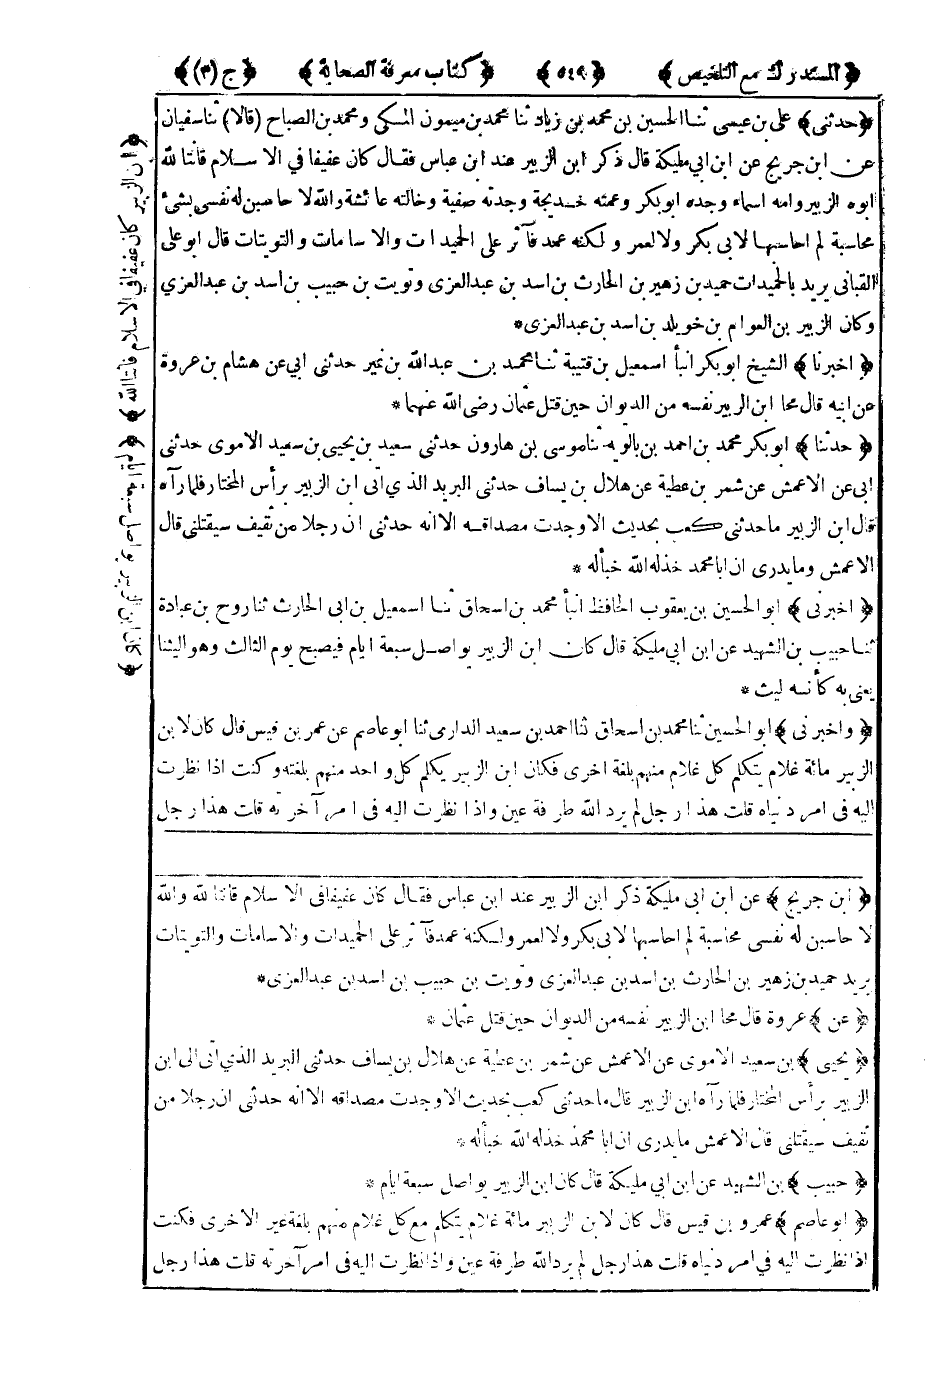 ﴿المستدرك مع التلخيص﴾ ﴿٥٤٩﴾ ﴿كتاب معرفة الصحابة﴾ ﴿ج (٣)﴾
﴿حدثنى﴾ على بن عيسى ثنا الحسين بن محمد بن زياد ثنا محمد بن ميمون المكى ومحمد بن الصباح (قالا) ثنا سفيان
عن ابن جريج عن ابن ابي مليكة قال ذكر ابن الزبير عند ابن عباس فقال كان عفيفا في الاسلام قانتا لله
ابوه الزبير وامه اسماء وجده ابوبكر وعمته خديجة وجدته صفية وخالته عائشة والله لا حاسبن له نفسى بشئ
محاسبة لم احاسبها لابى بكر ولا لعمر و لكنه عمد فآثر على الحميدات والاسامات والتويتات قال ابو على
القبانى يريد بالحميدات حميد بن زهير بن الحارث بن اسد بن عبد العزى وتويت بن حبيب بن اسد بن عبدالعزي
وكان الزبير بن العوام بن خويلد بن اسد بن عبدالعزى*
﴿ اخبرنا ﴾ الشيخ ابوبكر انبأ اسمعيل بن قتيبة ثنا محمد بن عبدالله بن نمير حدثنى ابي عن هشام بن عروة
عن ابيه قال محا ابن الزبير نفسه من الديوان حين قتل عثمان رضى الله عنهما *
﴿ حدثنا ﴾ ابوبكر محمد بن احمد بن بالويه ثنا موسى بن هارون حدثنى سعيد بن يحيى بن سعيد الاموى حدثنى
ابى عن الاعمش عن شمر بن عطية عن هلال بن يساف حدثنى البريد الذي اتى ابن الزبير برأس المختار فلما رآه
قال ابن الزبير ما حدثنى كعب بحديث الا وجدت مصداقه الا انه حدثنى ان رجلا من ثقيف سيقتلنى قال
الاعمش وما يدرى ان ابا محمد خذله الله خبأ له *
﴿ اخبرنى ﴾ ابو الحسين بن يعقوب الحافظ انبأ محمد بن اسحاق ثنا اسمعيل بن ابى الحارث ثنا روح بن عبادة
ثنا حبيب بن الشهيد عن ابن ابي مليكة قال كان ابن الزبير يواصل سبعة ايام فيصبح يوم الثالث وهو اليثنا
يعنى به كأنه ليث *
﴿ واخبرنى ﴾ ابو الحسين ثنا محمد بن اسحاق ثنا احمد بن سعيد الدارمى ثنا ابو عاصم عن عمر بن قيس قال كان لابن
الزبير مائة غلام يتكلم كل غلام منهم بلغة اخرى فكان ابن الزبير يكلم كل واحد منهم بلغته وكنت اذا نظرت
اليه فى امر دنياه قلت هذا رجل لم يرد الله طرفة عين واذا نظرت اليه فى امر آخرته قلت هذا رجل
﴿ ابن جريج ﴾ عن ابن ابى مليكة ذكر ابن الزبير عند ابن عباس فقال كان عفيفا فى الاسلام قانتا لله والله
لا حاسبن له نفسى محاسبة لم احاسبها لابى بكر ولا لعمر ولكنه عمد فآثر على الحميدات والاسامات والتويتات
يريد حميد بن زهير بن الحارث بن اسد بن عبد العزى وتويت بن حبيب بن اسد بن عبد العزى*
﴿ عن ﴾ عروة قال محا ابن الزبير نفسه من الديوان حين قتل عثمان *
﴿ يحيى ﴾ بن سعيد الاموى عن الاعمش عن شمر بن عطية عن هلال بن يساف حدثنى البريد الذي اتى الى ابن
الزبير برأس المختار فلما رآه ابن الزبير قال ما حدثنى كعب بحديث الا وجدت مصداقه الا انه حدثنى ان رجلا من
ثقيف سيقتلنى قال الاعمش ما يدرى ان ابا محمد خذله الله خبأ له *
﴿ حبيب ﴾ بن الشهيد عن ابن ابي مليكة قال كان ابن الزبير يواصل سبعة ايام *
﴿ ابو عاصم ﴾ عمرو بن قيس قال كان لابن الزبير مائة غلام يتكلم مع كل غلام منهم بلغة غير الاخرى فكنت
اذا نظرت اليه في امر دنياه قلت هذا رجل لم يرد الله طرفة عين واذا نظرت اليه فى امر آخرته قلت هذا رجل
﴿ ابن الزبير كان عفيفا في الاسلام قانتا لله ﴾ ﴿ كان ابن الزبير يواصل سبعة ايام ﴾